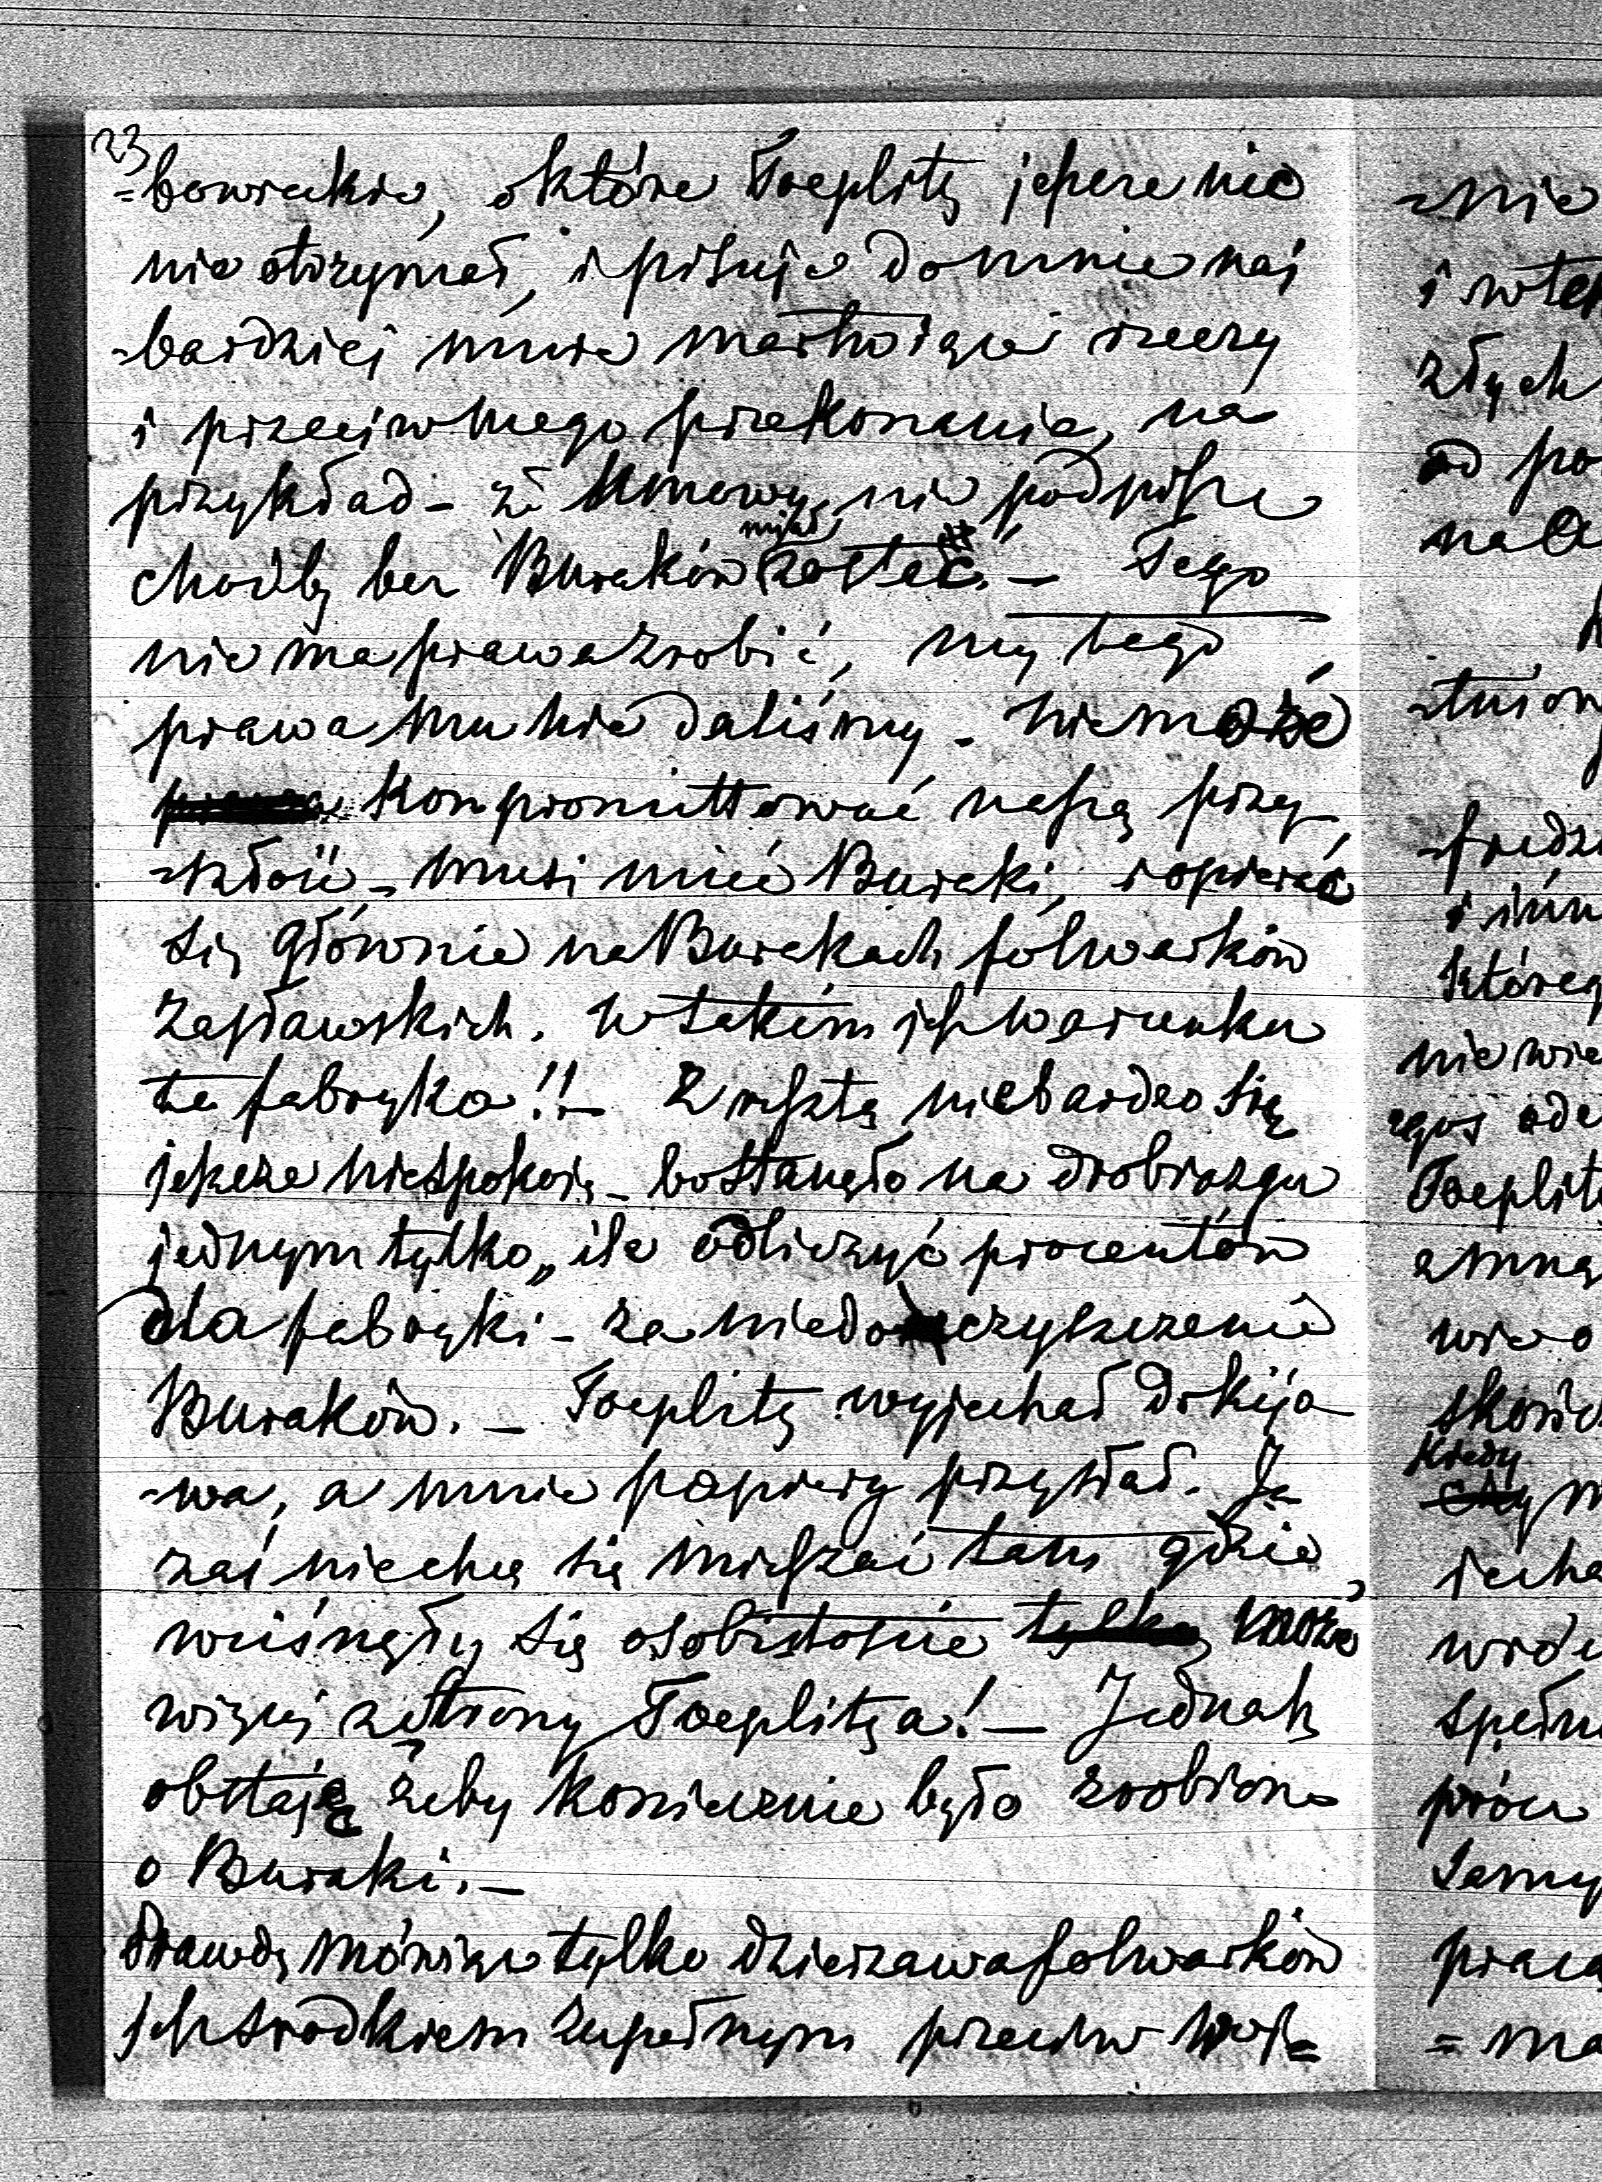 23
=bowieckie, o które Toeplitz jeszcze nic
nie otrzymał, i pisuje do mnie naj
=bardziej mnie martwiące rzeczy
i przeciw mego przekonania, na
przykład - że Umowy nie podpisze
choćby bez Buraków miał zostać. - Tego
nie ma prawa zrobić, my tego
prawa mu nie daliśmy - nie może
kompromittować naszą przy
=szłość - musi mieć Buraki, i opierać
się głównie na Burakach folwarków
Zasławskich. W takim jest warunku
ta fabryka!! - Zresztą niebardzo się
jeszcze niespokoję - bo stanęło na drobiazgu
jednym tylko „ile odliczyć procentów
dla fabryki - za niedoczyszczenie
Buraków. - Toeplitz wyjechał do Kijo-
-wa, a mnie papiery przysłał. Ja
zaś niechcę się mieszać tam gdzie
wcisnęły się osobistoście tylko, może
więcej ze strony Toeplitza! - Jednak
obstaję żeby koniecznie było zrobione
o Buraki. -
Prawdę mówiąc tylko dzierżawa folwarków
jest środkiem zupełnym przeciw
=nie
złych
od po
na
i inn
któreg
nie wie
Toeplitz
wie o
kiedy
jecha
spełn
prócz
samy
praca
= ma